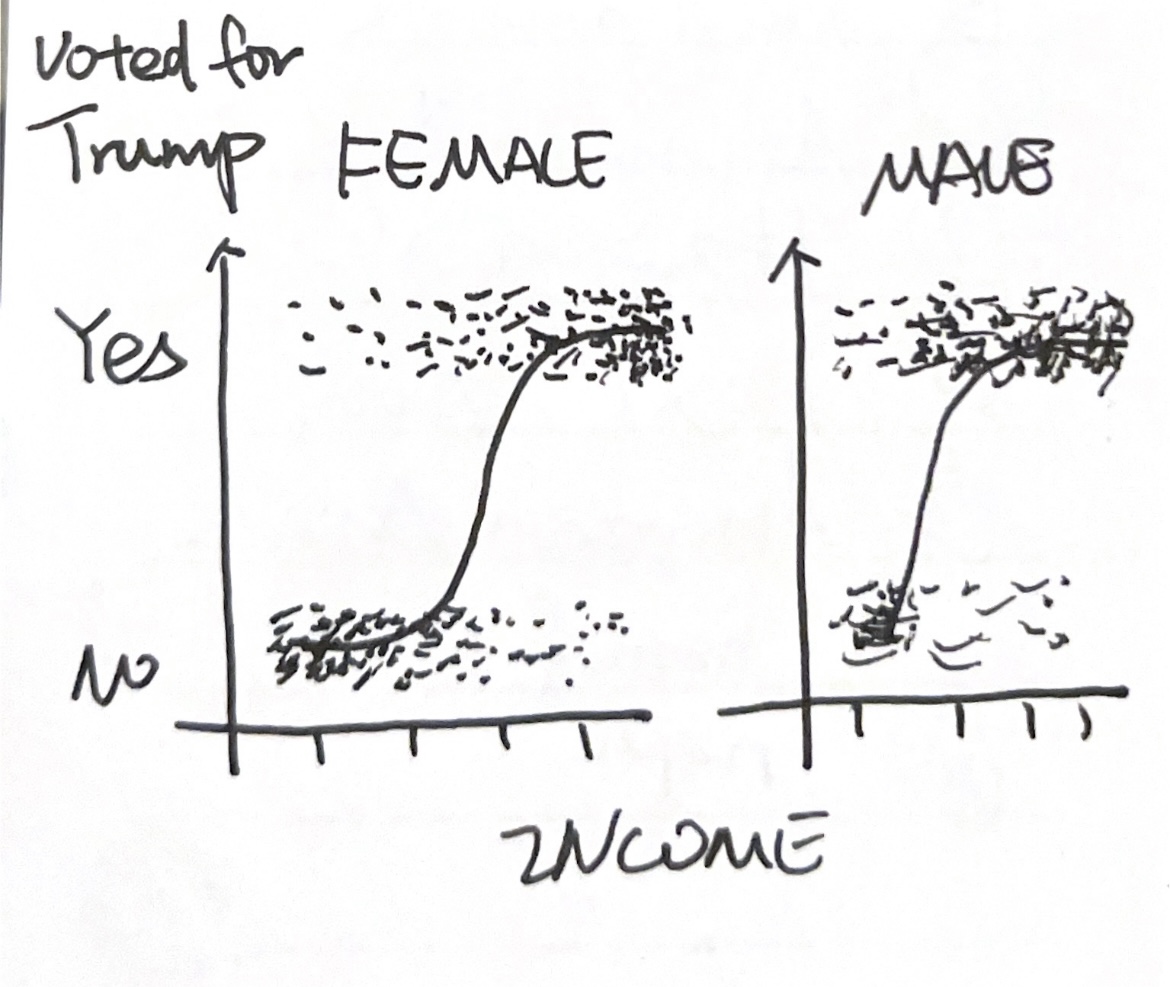 Voted for
Trump
FEMALE
MALE
Yes
No
INCOME